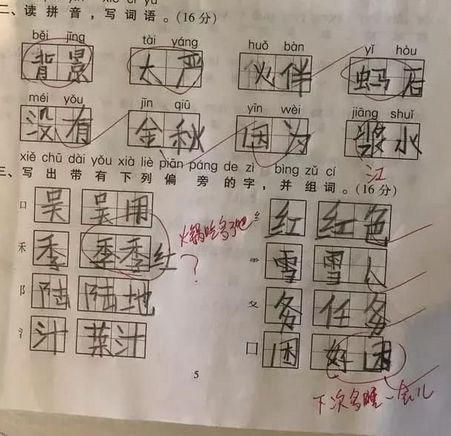 二、读拼音,写词语。(16分)
běi jǐng tài yáng huǒ bàn yǐ hòu
背景 太严 伙伴 蚂后
méi yǒu jīn qiū yīn wèi jiāng shuǐ
没有 金秋 因为 浆水
江
xiě chū dài yǒu xià liè piān páng de zì, bìng zǔ cí
三、写出带有下列偏旁的字,并组词。(16分)
口 吴 吴用 纟 红 红色
禾 季 季季红 火锅吃多了吧? 雪 雪人
阝 陆 陆地 夂 务 任务
氵 汁 菜汁 囗 困 好困
5
下次多睡一会儿